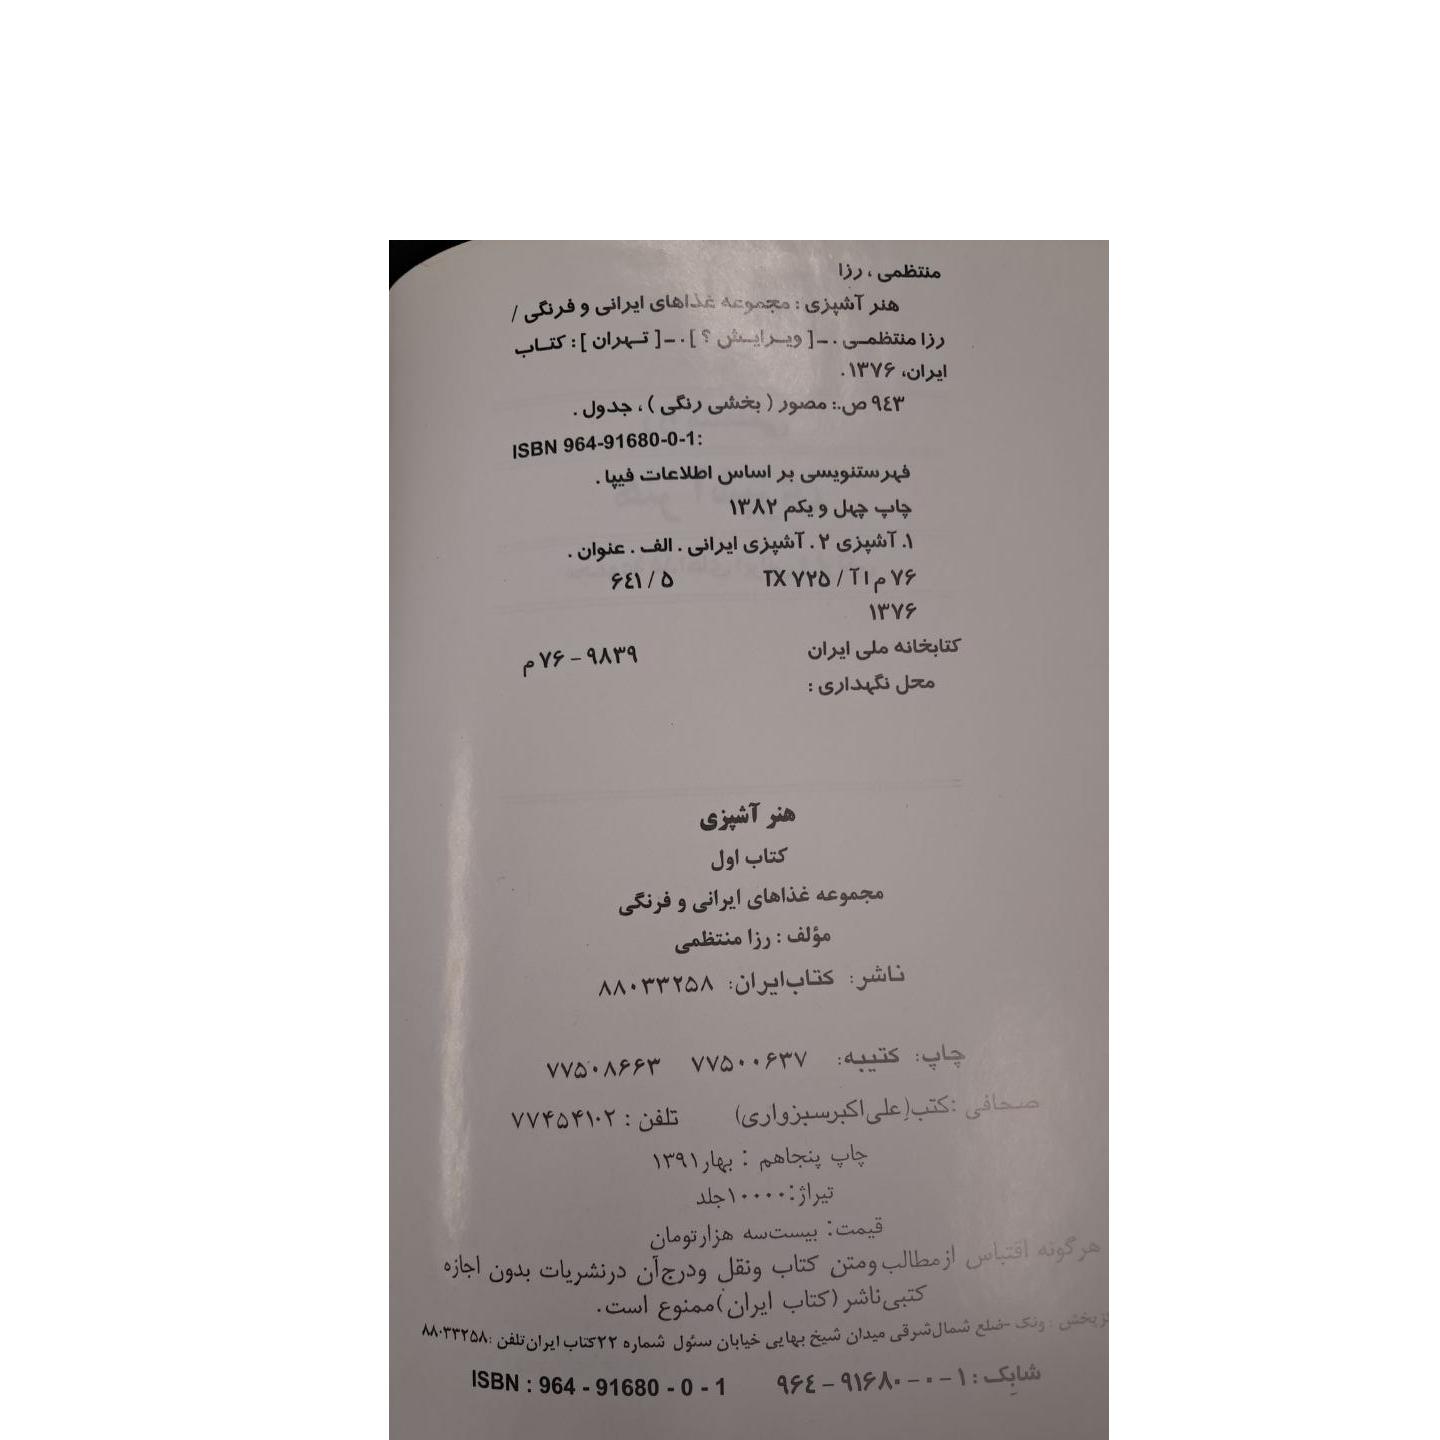 منتظمی ، رزا
هنر آشپزی : مجموعه غذاهای ایرانی و فرنگی /
رزا منتظمـی . ـ [ ویـرایـش ؟ ] . ـ [ تـهران ] : کتـاب
ایران، ۱۳۷۶ .
۹٤۳ ص.: مصور ( بخشی رنگی ) ، جدول .
ISBN 964-91680-0-1:
فهرستنویسی بر اساس اطلاعات فیپا .
چاپ چهل و یکم ۱۳۸۲
۱. آشپزی ۲ . آشپزی ایرانی . الف . عنوان .
۷۶ م ا آ / TX ۷۲۵ ۶٤۱ / ۵
۱۳۷۶
کتابخانه ملی ایران ۹۸۳۹ – ۷۶ م
محل نگهداری :
هنر آشپزی
کتاب اول
مجموعه غذاهای ایرانی و فرنگی
مؤلف : رزا منتظمی
ناشر: کتاب‌ایران: ۸۸۰۳۳۲۵۸
چاپ: کتیبه: ۷۷۵۰۰۶۳۷ ۷۷۵۰۸۶۶۳
صحافی :کتب(علی‌اکبرسبزواری) تلفن : ۷۷۴۵۴۱۰۲
چاپ پنجاهم : بهار۱۳۹۱
تیراژ:۱۰۰۰۰جلد
قیمت: بیست‌سه هزارتومان
هرگونه اقتباس ازمطالب‌ومتن کتاب ونقل ودرج‌آن درنشریات بدون اجازه
کتبی‌ناشر(کتاب ایران)ممنوع است.
ونک -ضلع شمال‌شرقی میدان شیخ بهایی خیابان سئول شماره ۲۲کتاب ایران‌تلفن :۸۸۰۳۳۲۵۸
شابک : ۱ – ۰ – ۹۱۶۸۰ – ۹۶٤ ISBN : 964 - 91680 - 0 - 1